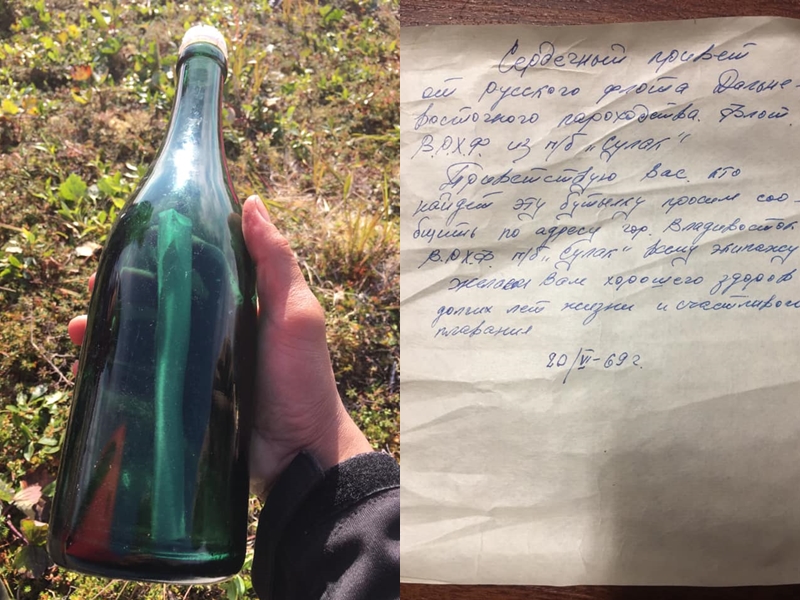 Сердечный привет
от русского флота Дальне-
восточного пароходства. Флот.
В.О.Х.Ф. из п/б „Сулак"
Приветствую Вас. кто
найдет эту бутылку просим соо-
бщить по адресу гор. Владивосток
В.О.Х.Ф. п/б „Сулак" всему экипажу
Желаем Вам хорошего здоров
долгих лет жизни и счастливого
плавания
20/VI-69 г.